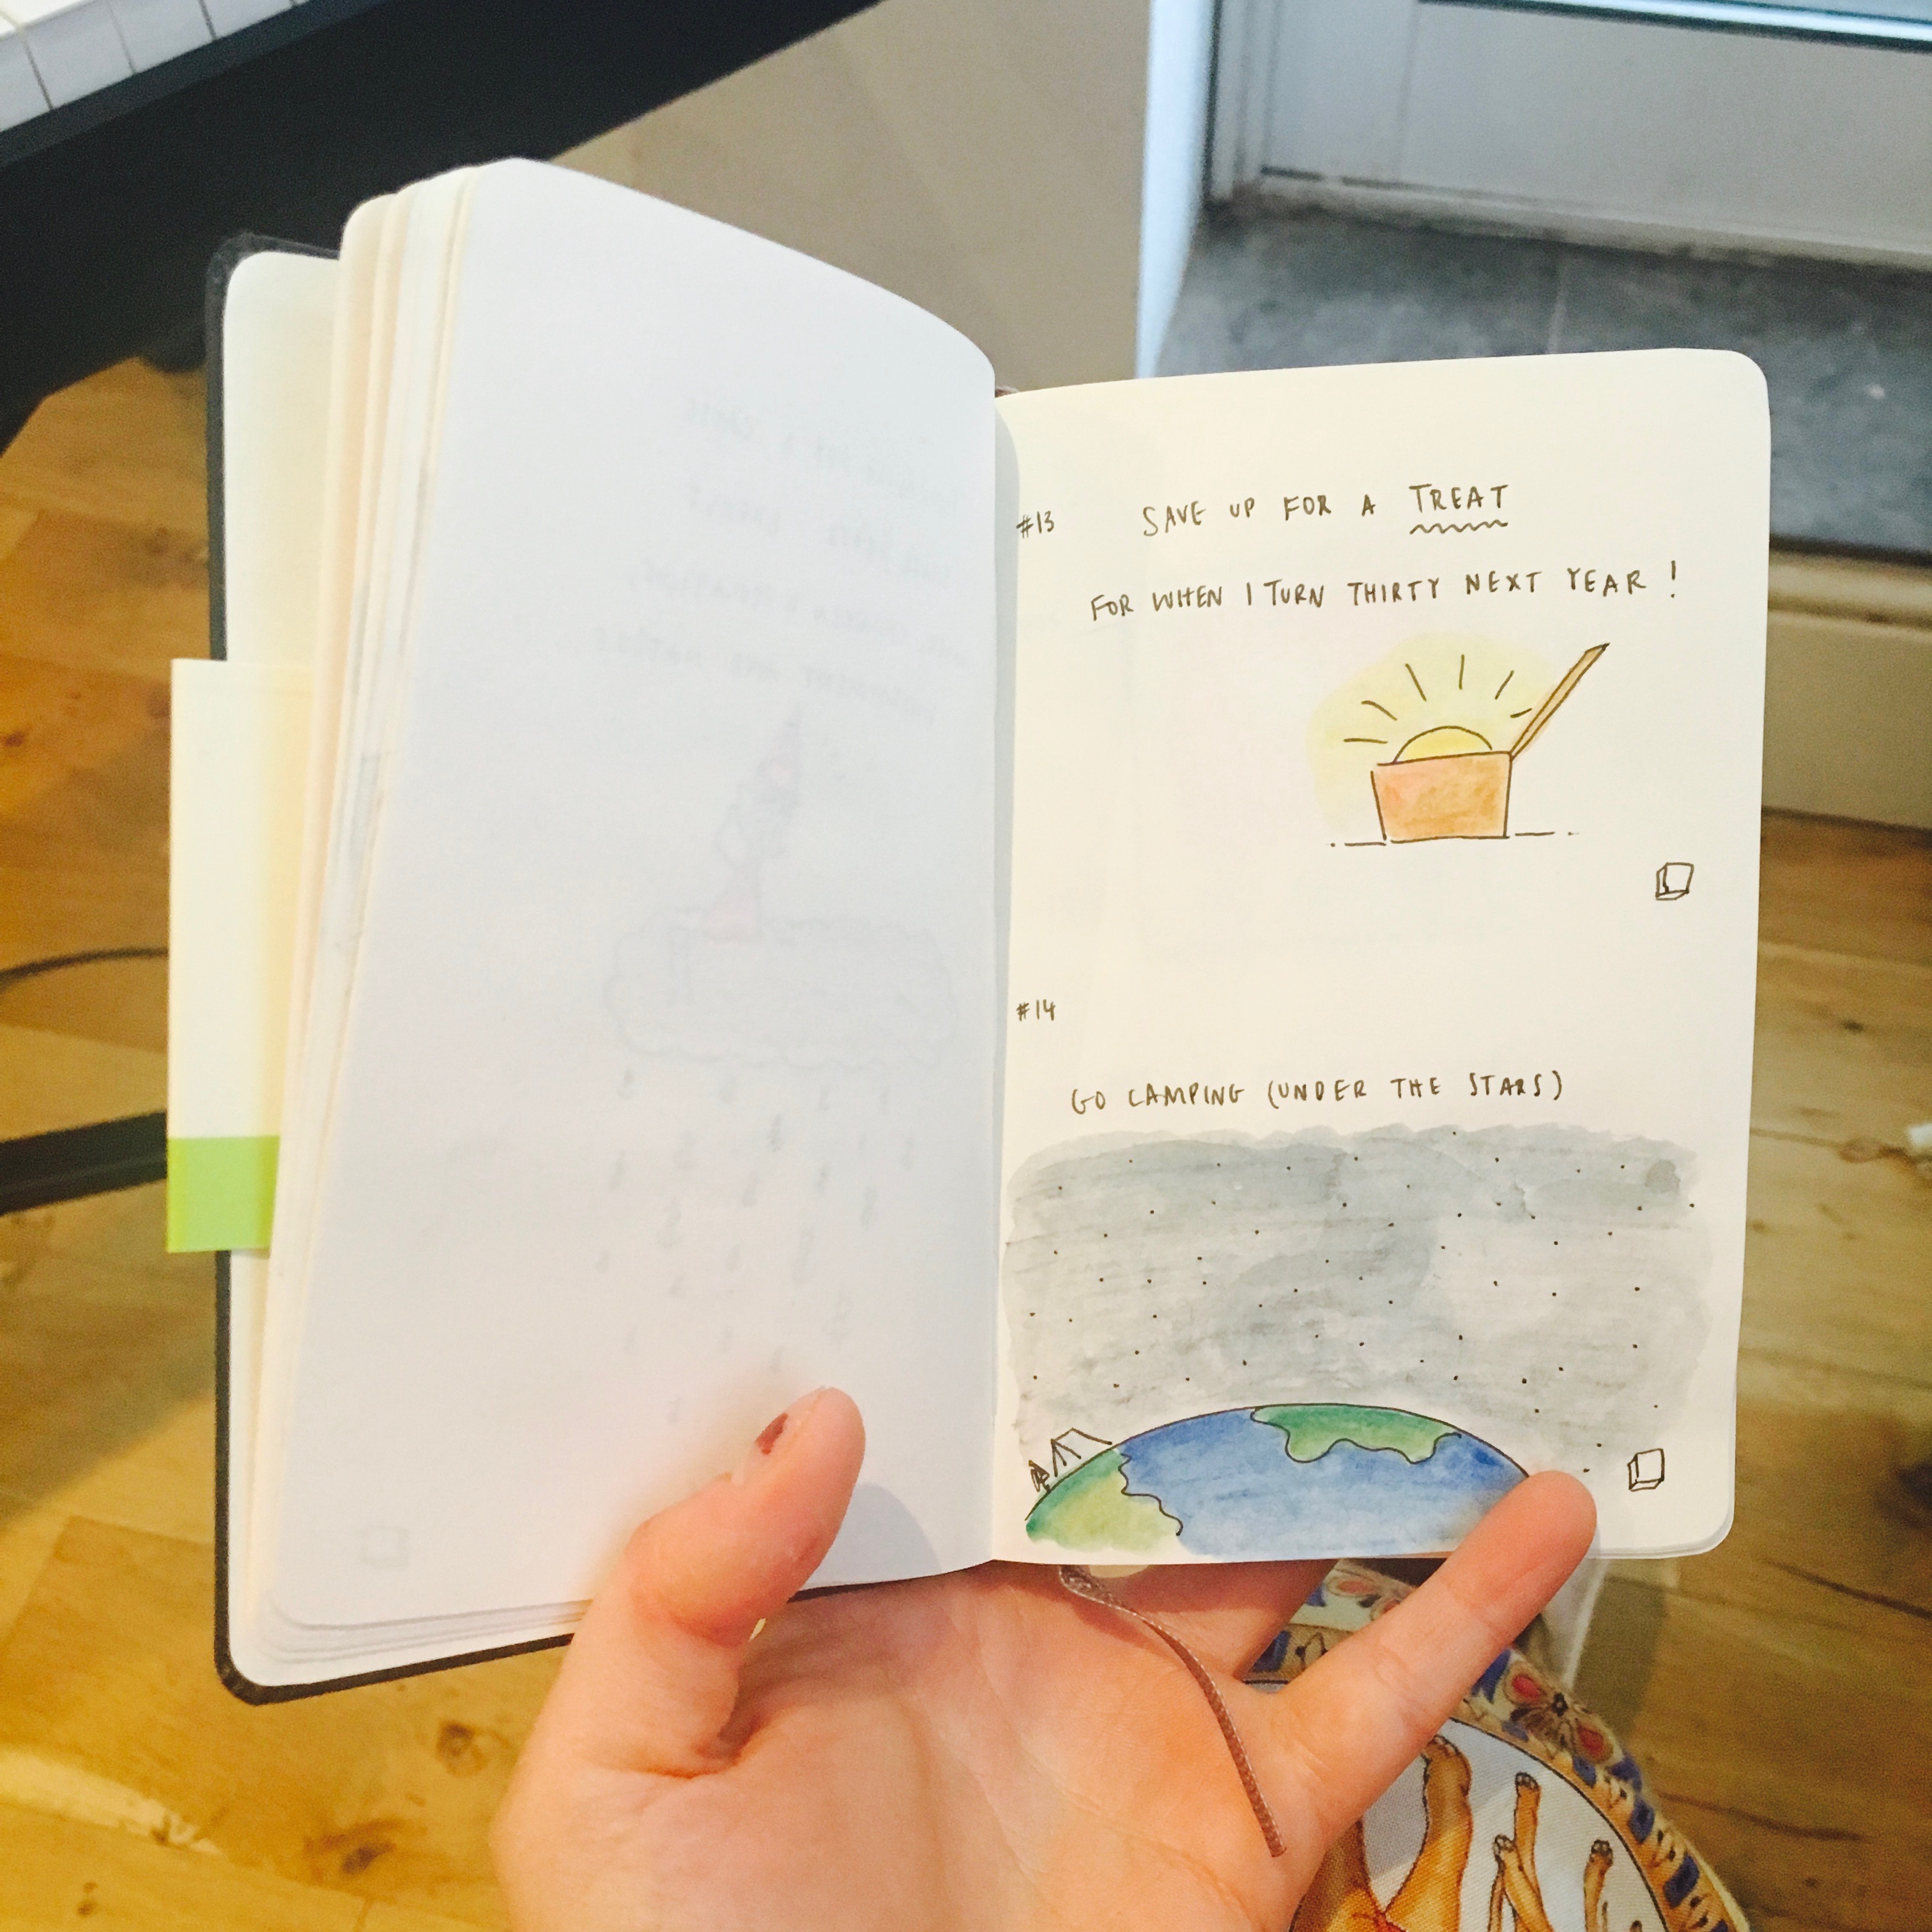 #13 SAVE UP FOR A TREAT
FOR WHEN I TURN THIRTY NEXT YEAR!
#14
GO CAMPING (UNDER THE STARS)